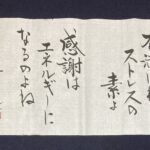 ストレスの
素よ
感謝は
エネルギーに
なるのよね